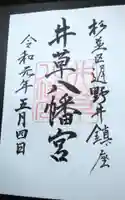 杉並区遅野井鎮座
井草八幡宮
令和元年五月四日